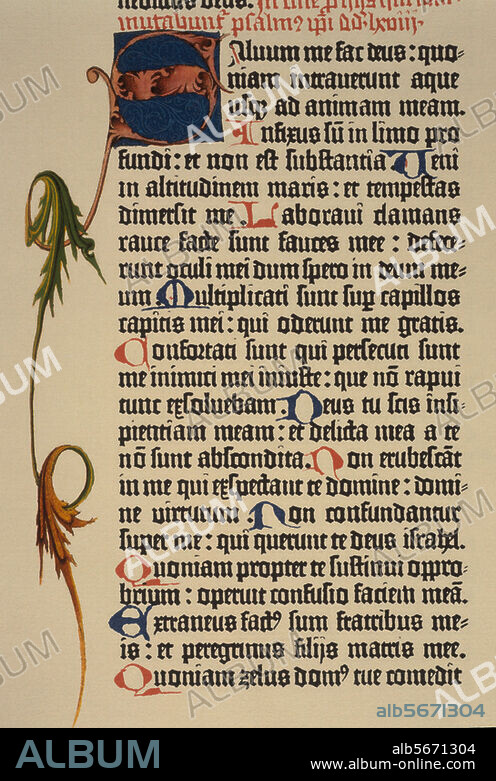 nedictus deus. In fine p hijs qui
mutabunt̄ psalm⁹ ip̄i dd· lxviij·
Saluum me fac deus: quo-
niam intraverunt aque
usq; ad animam meam.
Infixus sū in limo pro
fundi: et non est substantia Veni
in altitudinem maris: et tempestas
dimersit me. Laboraui clamans
rauce facte sunt fauces mee: defece-
runt oculi mei dum spero in deum me-
um. Multiplicati sunt sup̄ capillos
capitis mei: qui oderunt me gratis.
Confortati sunt qui persecuti sunt
me inimici mei iniuste: que nō rapui
tunc exsoluebam. Deus tu scis insi-
pientiam meam: et delicta mea a te
nō sunt abscondita. Non erubescāt
in me qui exspectant te domine: domi-
ne virtutum. Non confundantur
super me: qui querunt te deus israhel.
Quoniam propter te sustinui oppro-
brium: operuit confusio faciem meā.
Extraneus fact⁹ sum fratribus me-
is: et peregrinus filijs matris mee.
Quoniam zelus dom⁹ tue comedit
ALBUM
alb5671304
ALBUM
alb5671304
www.album-online.com